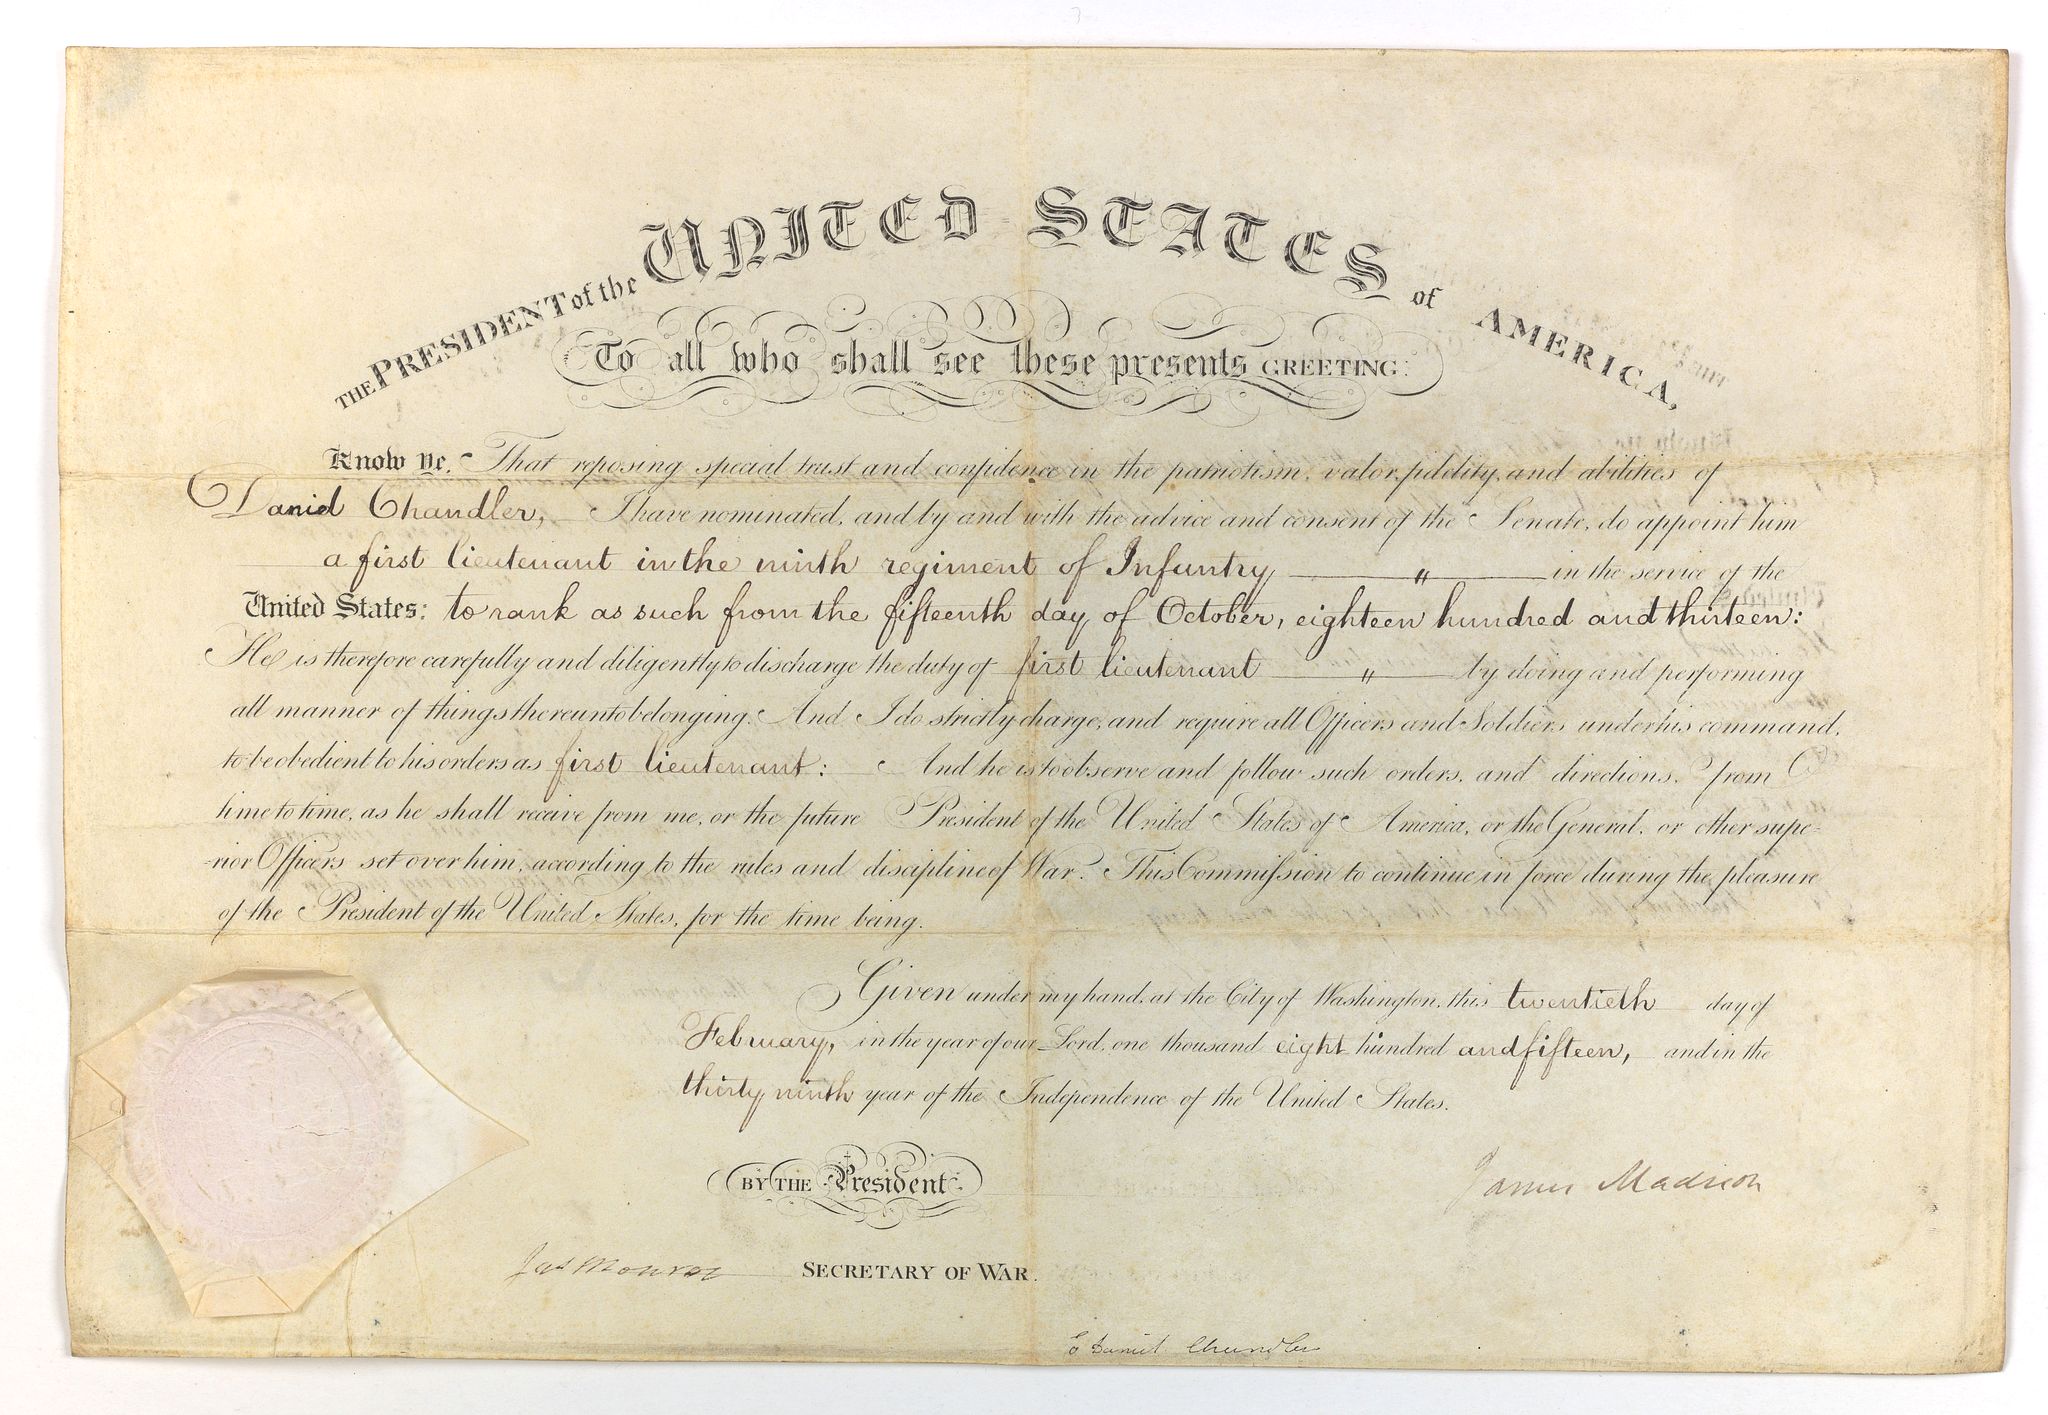 THE PRESIDENT of the UNITED STATES of AMERICA,
To all who shall see these presents GREETING:
Know Ye, That reposing special trust and confidence in the patriotism, valor, fidelity, and abilities of
Daniel Chandler, I have nominated, and by and with the advice and consent of the Senate, do appoint him
a first lieutenant in the ninth regiment of Infantry — " — in the service of the
United States: to rank as such from the fifteenth day of October, eighteen hundred and thirteen:
He is therefore carefully and diligently to discharge the duty of first lieutenant — " — by doing and performing
all manner of things thereunto belonging. And I do strictly charge, and require all Officers and Soldiers under his command,
to be obedient to his orders as first lieutenant: And he is to observe and follow such orders, and directions, from
time to time, as he shall receive from me, or the future President of the United States of America, or the General, or other supe-
-rior Officers set over him, according to the rules and discipline of War. This Commission to continue in force during the pleasure
of the President of the United States, for the time being.
Given under my hand, at the City of Washington, this twentieth day of
February, in the year of our Lord, one thousand eight hundred and fifteen, and in the
thirty ninth year of the Independence of the United States.
BY THE President
James Madison
Jas Monroe SECRETARY OF WAR.
Daniel Chandler